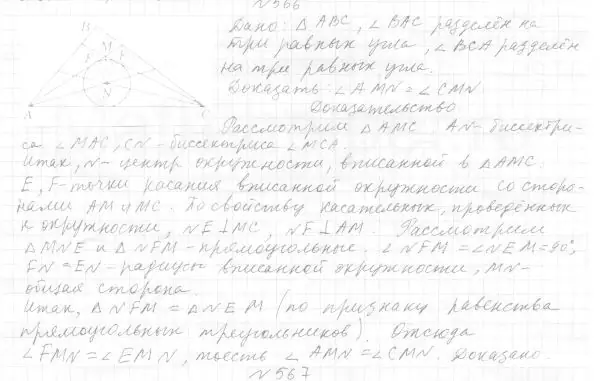 №566
Дано: △ ABC, ∠ BAC разделён на
три равных угла, ∠ BCA разделён
на три равных угла.
Доказать: ∠ AMN = ∠ CMN.
Доказательство
Рассмотрим △ AMC. AN - биссектри-
са ∠ MAC, CN - биссектриса ∠ MCA.
Итак, N - центр окружности, вписанной в △ AMC.
E, F - точки касания вписанной окружности со сторо-
нами AM и MC. По свойству касательных, проведённых
к окружности, NE ⊥ MC, NF ⊥ AM. Рассмотрим
△ MNE и △ NFM - прямоугольные. ∠ NFM = ∠ NEM = 90°,
FN = EN - радиусы вписанной окружности, MN -
общая сторона.
Итак, △ NFM = △ NEM (по признаку равенства
прямоугольных треугольников). Отсюда
∠ FMN = ∠ EMN, тоесть ∠ AMN = ∠ CMN. Доказано.
№567
B
M
F
E
N
A
C